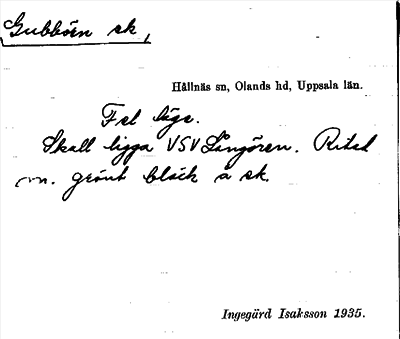 Gubbörn sk,
Hållnäs sn, Olands hd, Uppsala län.
Fel läge.
Skall ligga VSV Långören. Ritad
m. grönt bläck å ek.
Ingegärd Isaksson 1935.